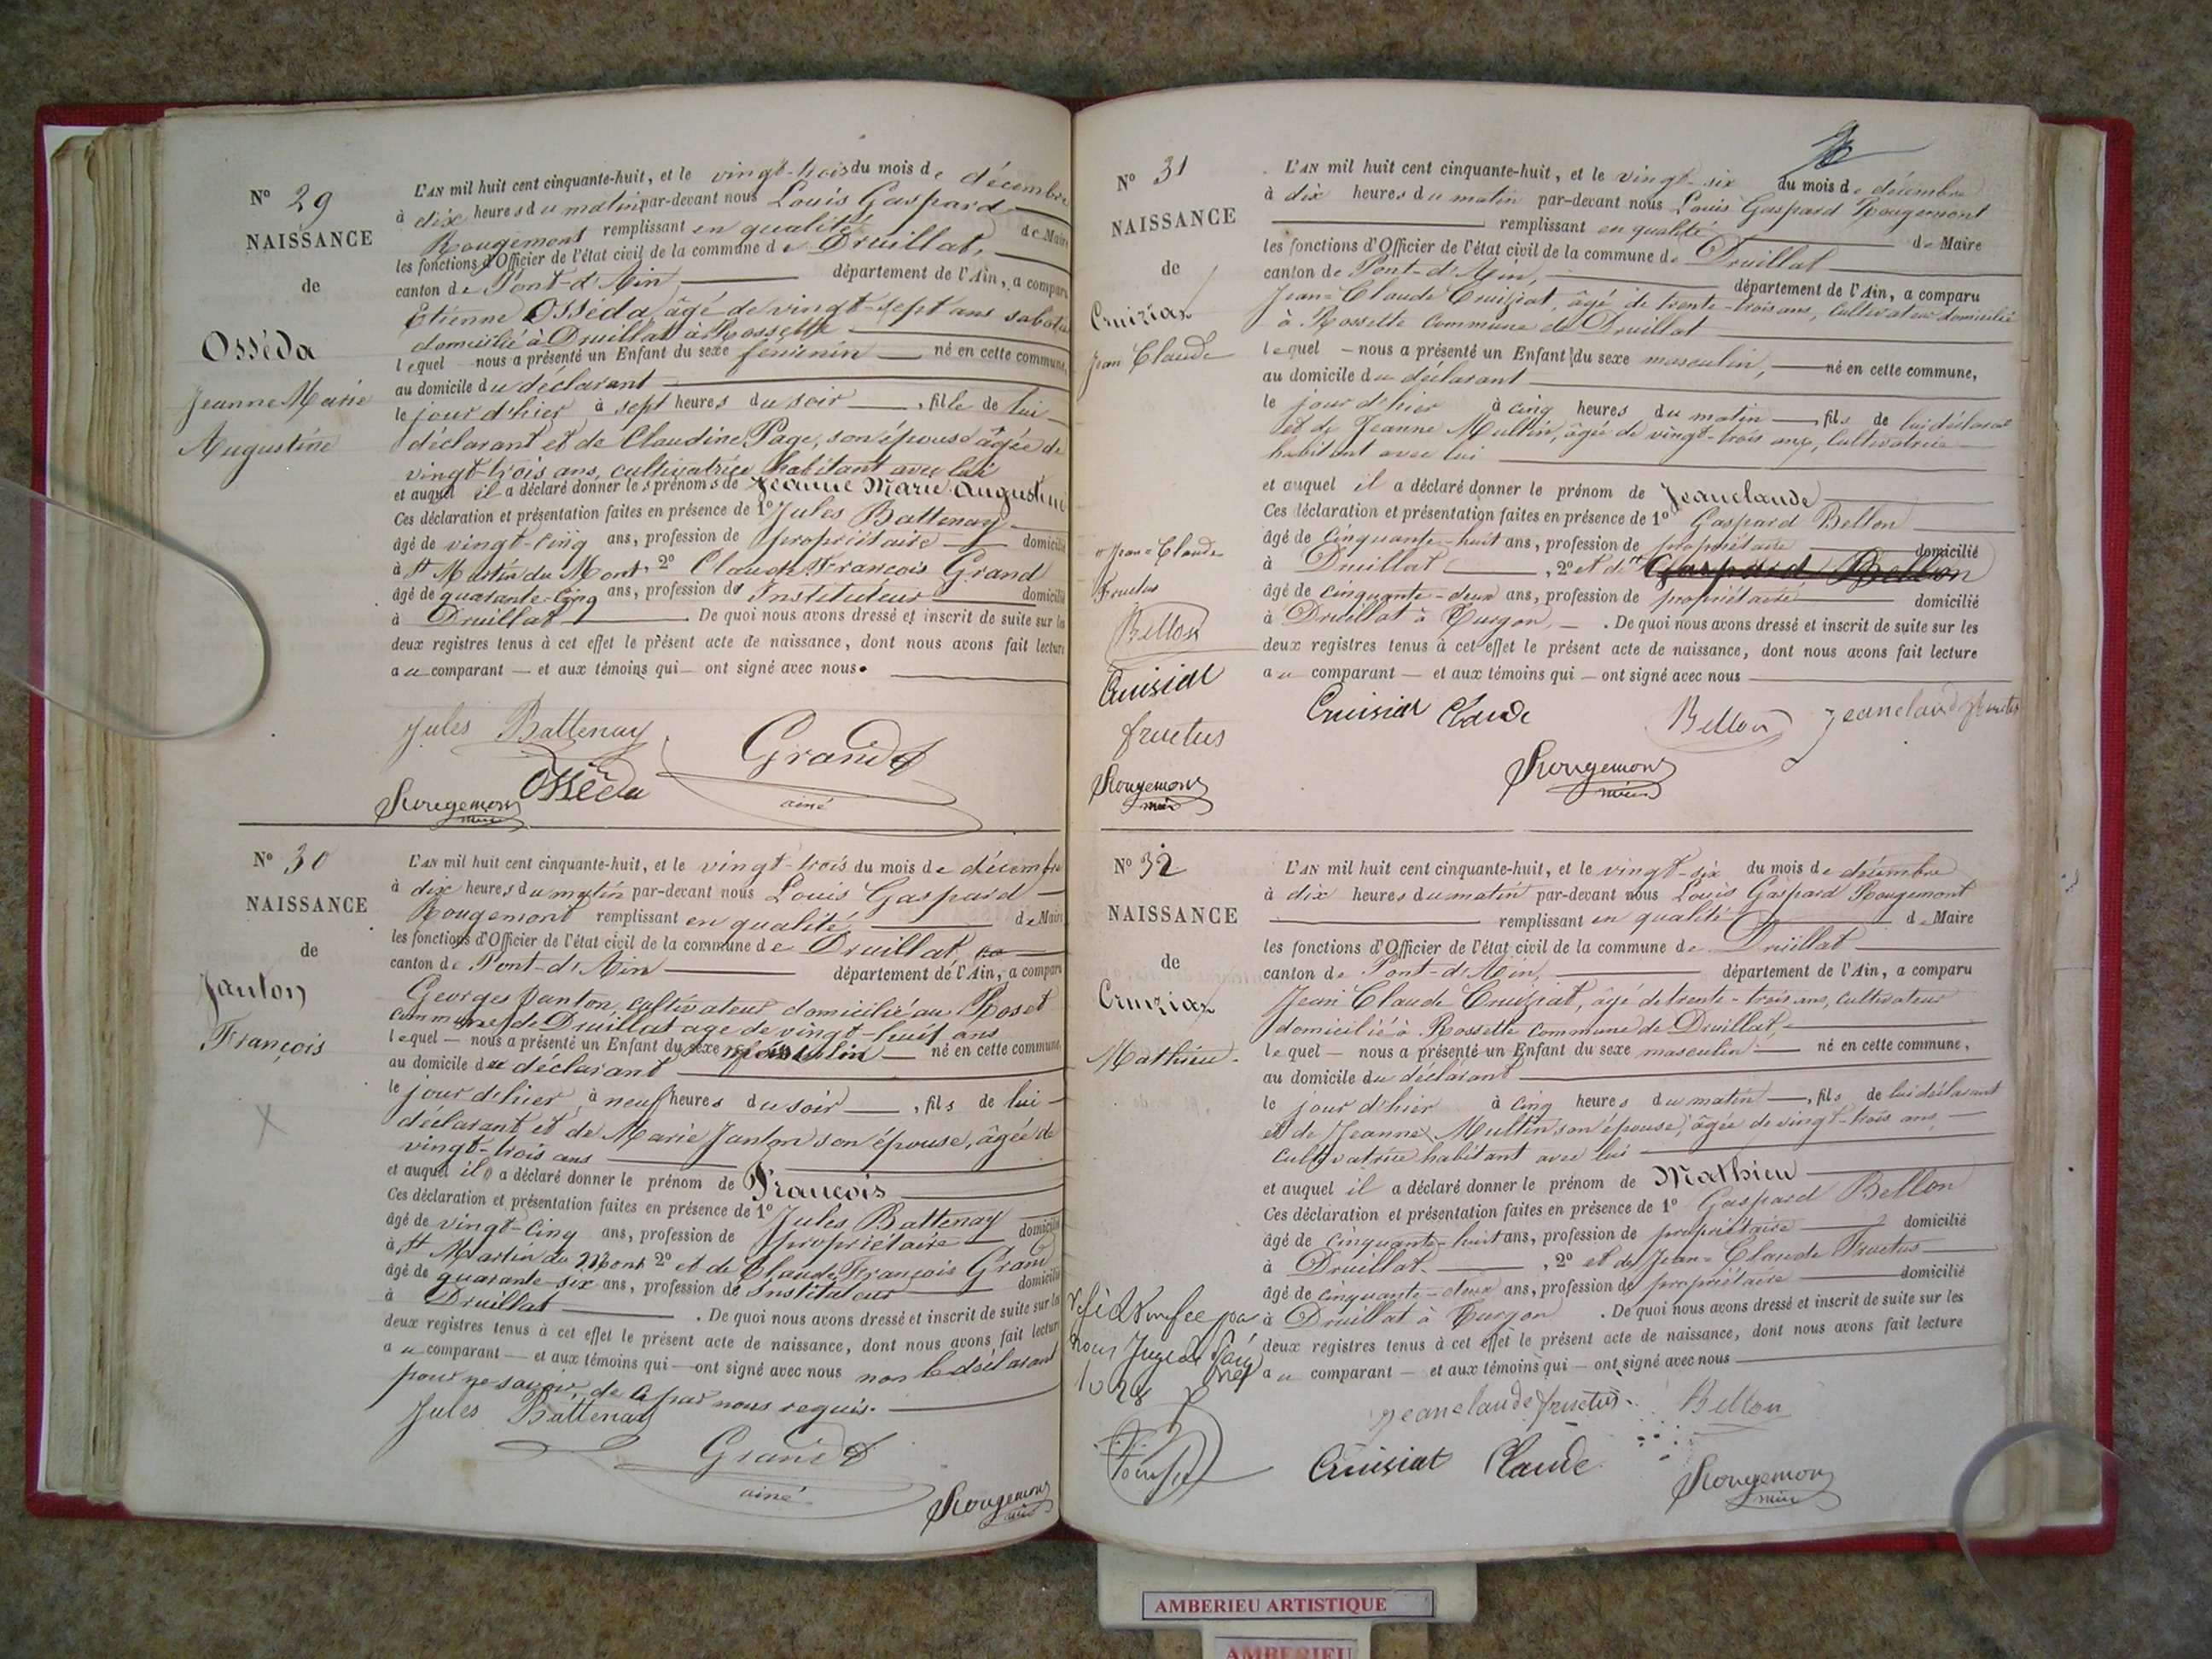 N° 29
NAISSANCE
de
Osséda
Jeanne Marie
Augustine
L'AN mil huit cent cinquante-huit, et le vingt-trois du mois de décembre
à dix heures du matin par-devant nous Louis Gaspard
Rougemont remplissant en qualité de Maire
les fonctions d'Officier de l'état civil de la commune de Druillat,
canton de Pont-d'Ain département de l'Ain, a comparu
Etienne Osséda, âgé de vingt-sept ans sabotier
domicilié à Druillat à Rossette
lequel nous a présenté un Enfant du sexe féminin né en cette commune,
au domicile du déclarant
le jour d'hier à sept heures du soir, fille de lui
déclarant et de Claudine Page, son épouse âgée de
vingt-trois ans, cultivatrice habitant avec lui
et auquel il a déclaré donner les prénoms de Jeanne Marie Augustine
Ces déclaration et présentation faites en présence de 1° Jules Battenay
âgé de vingt-cinq ans, profession de propriétaire domicilié
à St Martin du Mont, 2° Claude François Grand
âgé de quarante-cinq ans, profession de Instituteur domicilié
à Druillat. De quoi nous avons dressé et inscrit de suite sur les
deux registres tenus à cet effet le présent acte de naissance, dont nous avons fait lecture
au comparant et aux témoins qui ont signé avec nous.
Jules Battenay
Grand
Osséda
ainé
Rougemont
maire
N° 30
NAISSANCE
de
Janton
François
L'AN mil huit cent cinquante-huit, et le vingt-trois du mois de décembre
à dix heures du matin par-devant nous Louis Gaspard
Rougemont remplissant en qualité de Maire
les fonctions d'Officier de l'état civil de la commune de Druillat
canton de Pont-d'Ain département de l'Ain, a comparu
Georges Janton, cultivateur domicilié au Roset
commune de Druillat age de vingt-huit ans
lequel nous a présenté un Enfant du sexe masculin né en cette commune,
au domicile du déclarant
le jour d'hier à neuf heures du soir, fils de lui
déclarant et de Marie Janton son épouse, âgée de
vingt-trois ans
et auquel il a déclaré donner le prénom de François
Ces déclaration et présentation faites en présence de 1° Jules Battenay
âgé de vingt-cinq ans, profession de propriétaire domicilié
à St Martin du Mont 2° et de Claude François Grand
âgé de quarante-six ans, profession de Instituteur domicilié
à Druillat. De quoi nous avons dressé et inscrit de suite sur les
deux registres tenus à cet effet le présent acte de naissance, dont nous avons fait lecture
au comparant et aux témoins qui ont signé avec nous non le déclarant
pour ne savoir, de ce par nous requis.
Jules Battenay
Grand
ainé
Rougemont
maire
N° 31
NAISSANCE
de
Cruiziat
Jean Claude
L'AN mil huit cent cinquante-huit, et le vingt-six du mois de décembre
à dix heures du matin par-devant nous Louis Gaspard Rougemont
remplissant en qualité de Maire
les fonctions d'Officier de l'état civil de la commune de Druillat
canton de Pont-d'Ain, département de l'Ain, a comparu
Jean-Claude Cruiziat, âgé de trente-trois ans, cultivateur domicilié
à Rossette commune de Druillat
lequel nous a présenté un Enfant du sexe masculin, né en cette commune,
au domicile du déclarant
le jour d'hier à cinq heures du matin fils de lui déclarant
et de Jeanne Multin, âgée de vingt-trois ans, cultivatrice
habitant avec lui
et auquel il a déclaré donner le prénom de Jeanclaude
Ces déclaration et présentation faites en présence de 1° Gaspard Bellon
âgé de cinquante-huit ans, profession de propriétaire domicilié
à Druillat, 2° et de Gaspard Bellon
âgé de cinquante-deux ans, profession de propriétaire domicilié
à Druillat à Turgon. De quoi nous avons dressé et inscrit de suite sur les
deux registres tenus à cet effet le présent acte de naissance, dont nous avons fait lecture
au comparant et aux témoins qui ont signé avec nous
Jean-Claude
Fructus
Bellon
Cruisiat
fructus
Rougemont
maire
Cruisiat Claude
Bellon
Jeanclaude fructus
Rougemont
maire
N° 32
NAISSANCE
de
Cruiziat
Mathieu
L'AN mil huit cent cinquante-huit, et le vingt-six du mois de décembre
à dix heures du matin par-devant nous Louis Gaspard Rougemont
remplissant en qualité de Maire
les fonctions d'Officier de l'état civil de la commune de Druillat
canton de Pont-d'Ain, département de l'Ain, a comparu
Jean Claude Cruiziat, âgé de trente-trois ans, cultivateur
domicilié à Rossette commune de Druillat,
lequel nous a présenté un Enfant du sexe masculin né en cette commune,
au domicile du déclarant
le jour d'hier à cinq heures du matin, fils de lui déclarant
et de Jeanne Multin son épouse, âgée de vingt-trois ans
cultivatrice habitant avec lui
et auquel il a déclaré donner le prénom de Mathieu
Ces déclaration et présentation faites en présence de 1° Gaspard Bellon
âgé de cinquante-huit ans, profession de propriétaire domicilié
à Druillat, 2° et de Jean-Claude Fructus
âgé de cinquante-deux ans, profession de propriétaire domicilié
à Druillat à Turgon. De quoi nous avons dressé et inscrit de suite sur les
deux registres tenus à cet effet le présent acte de naissance, dont nous avons fait lecture
au comparant et aux témoins qui ont signé avec nous
par
nous Juge de
Jeanclaude fructus
Bellon
Cruisiat Claude
Rougemont
maire
AMBERIEU ARTISTIQUE
AMBERIEU